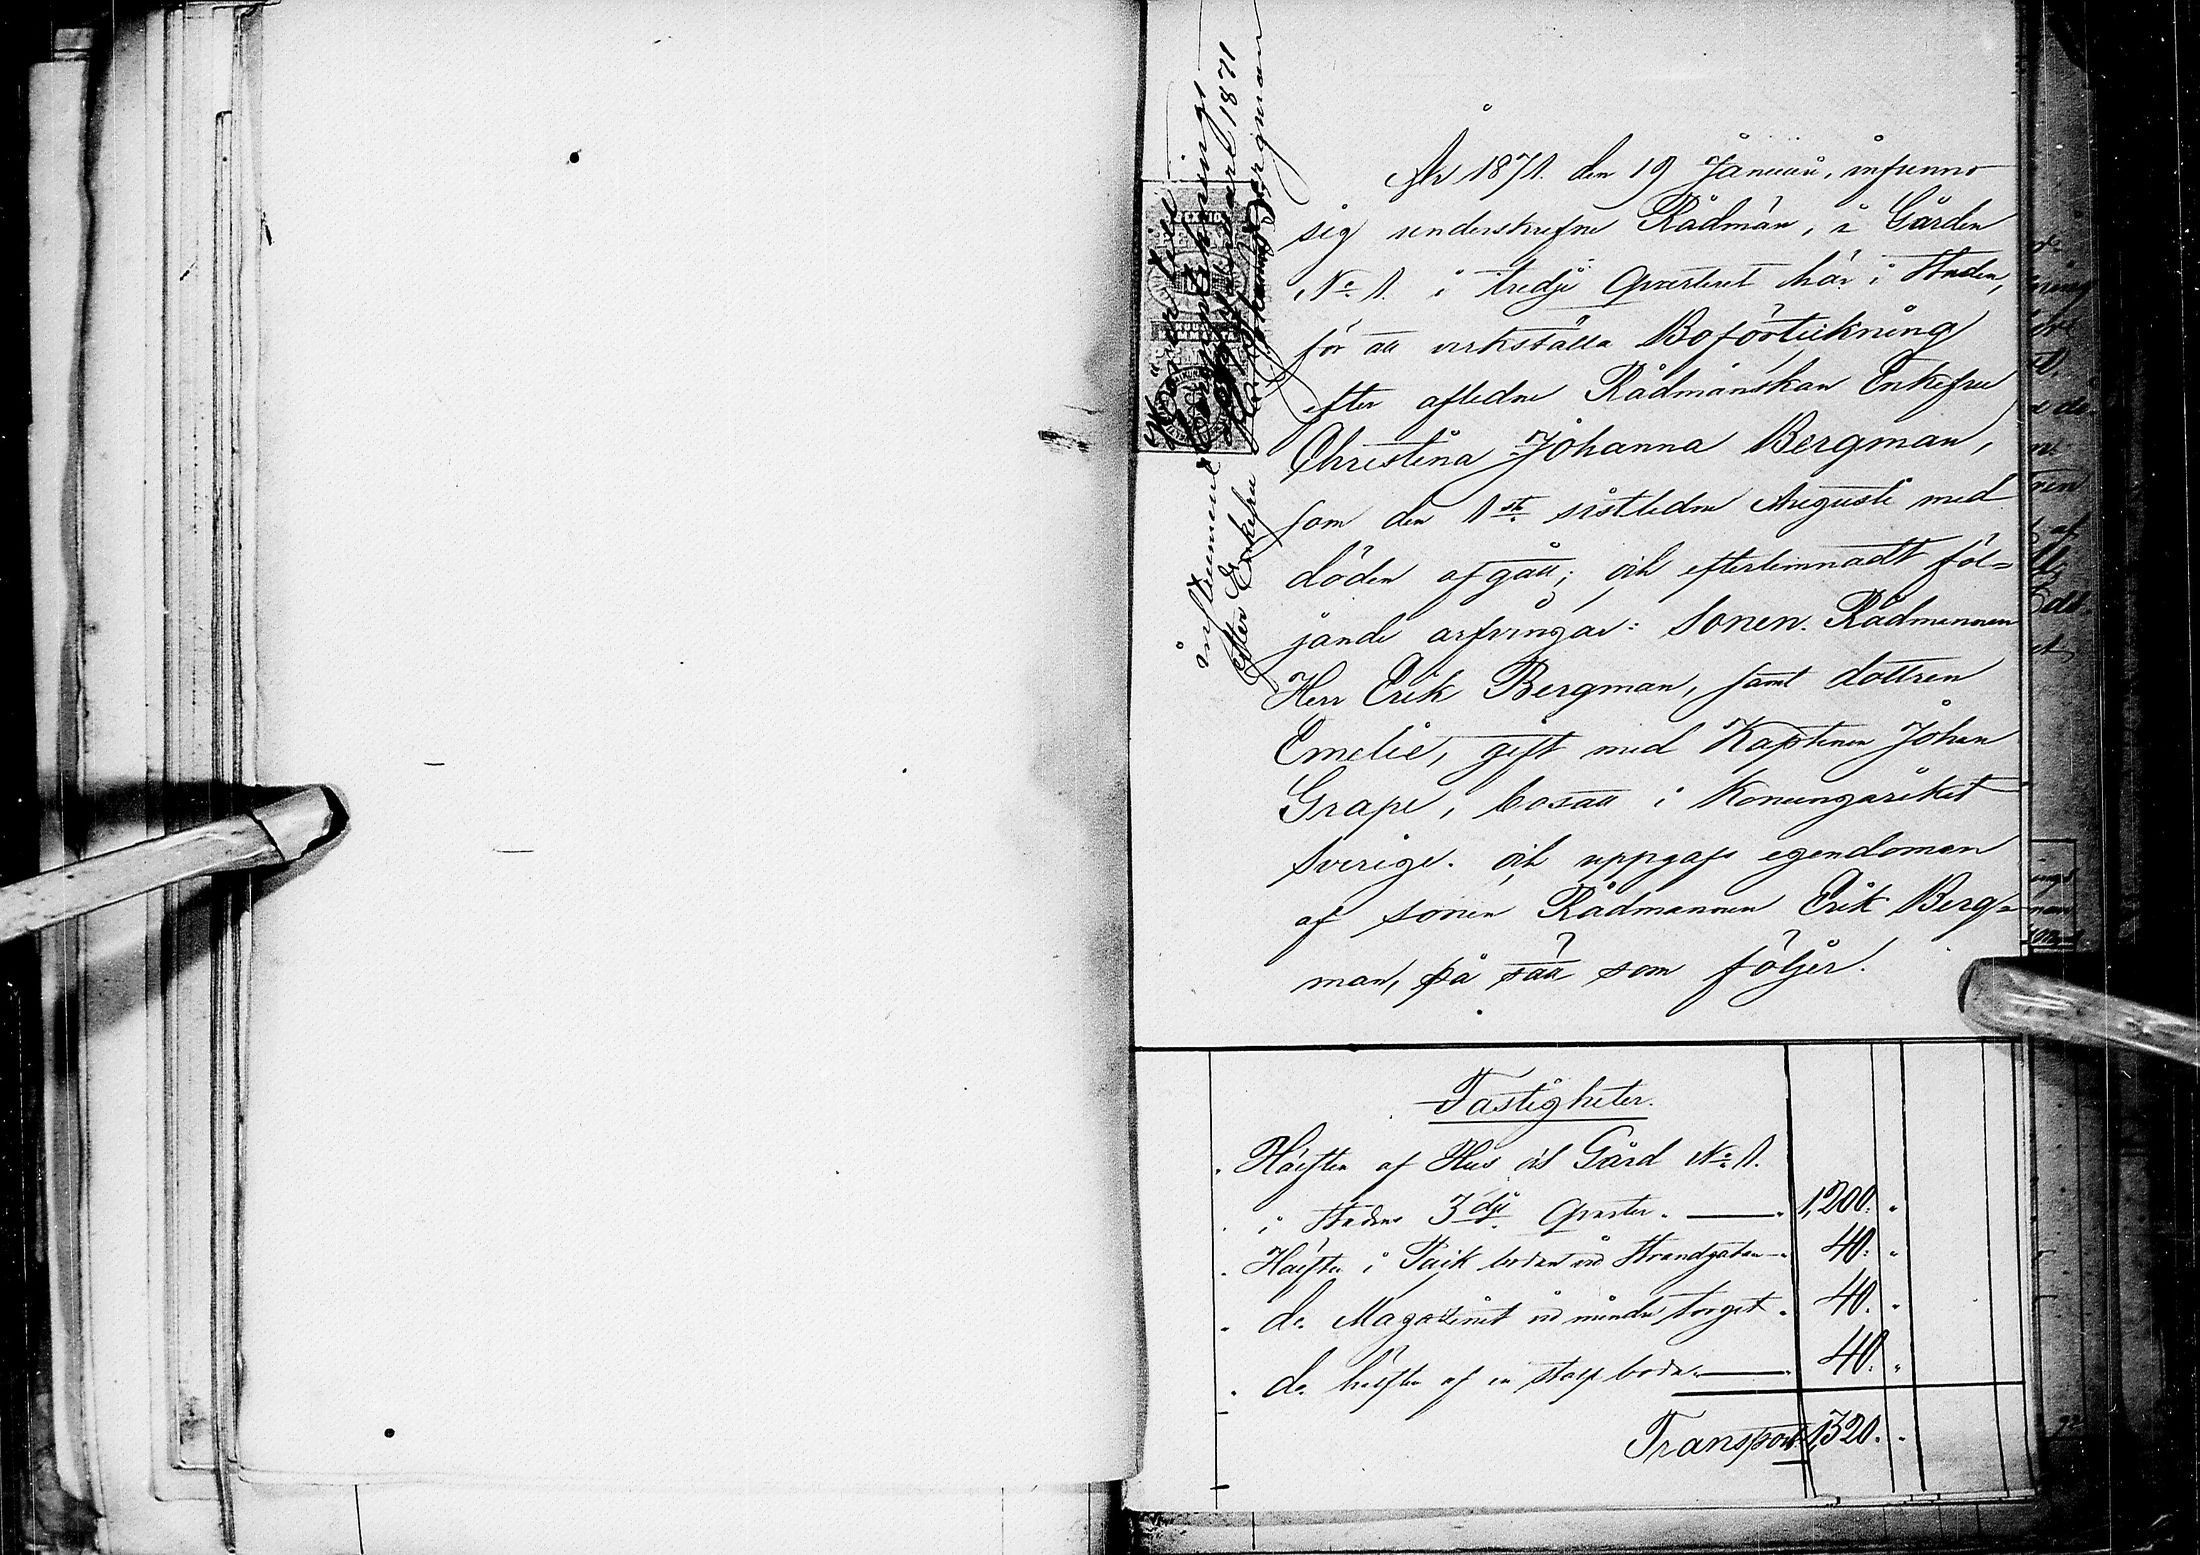 År 1871. den 19 Januari, infunno
sig underskrefne Rådmän, i Gården
No. 1. i tredje Qvarteret här i Staden,
för att verkställa Boförteckning
efter aflidne Rådmanskan Enkefru
Christina Johanna Bergman,
som den 1ste sistledne Augusti med
döden afgått; och efterlemnadt föl=
jande arfvingar: Sonen. Rådmannen
Herr Erik Bergman, samt dottren
Emelie, gift med Kaptenen Johan
Grape, bosatt i Konungariket
Sverige. och uppgafs egendomen
af sonen Rådmannen Erik Berg=
man, på sätt som följer.
Instrument
efter Enkefru Johanna Bergman
1871
Fastigheter.
Hälften af Hus och Gård No. 1.
i Stadens 3dje Qvarter. 1,200.
Hälften i Pack boden vid Strandgatan 40.
do. Magazinet vid mindre torget. 40.
do. hälften af en Stolp bod 40.
Transport 1,320.